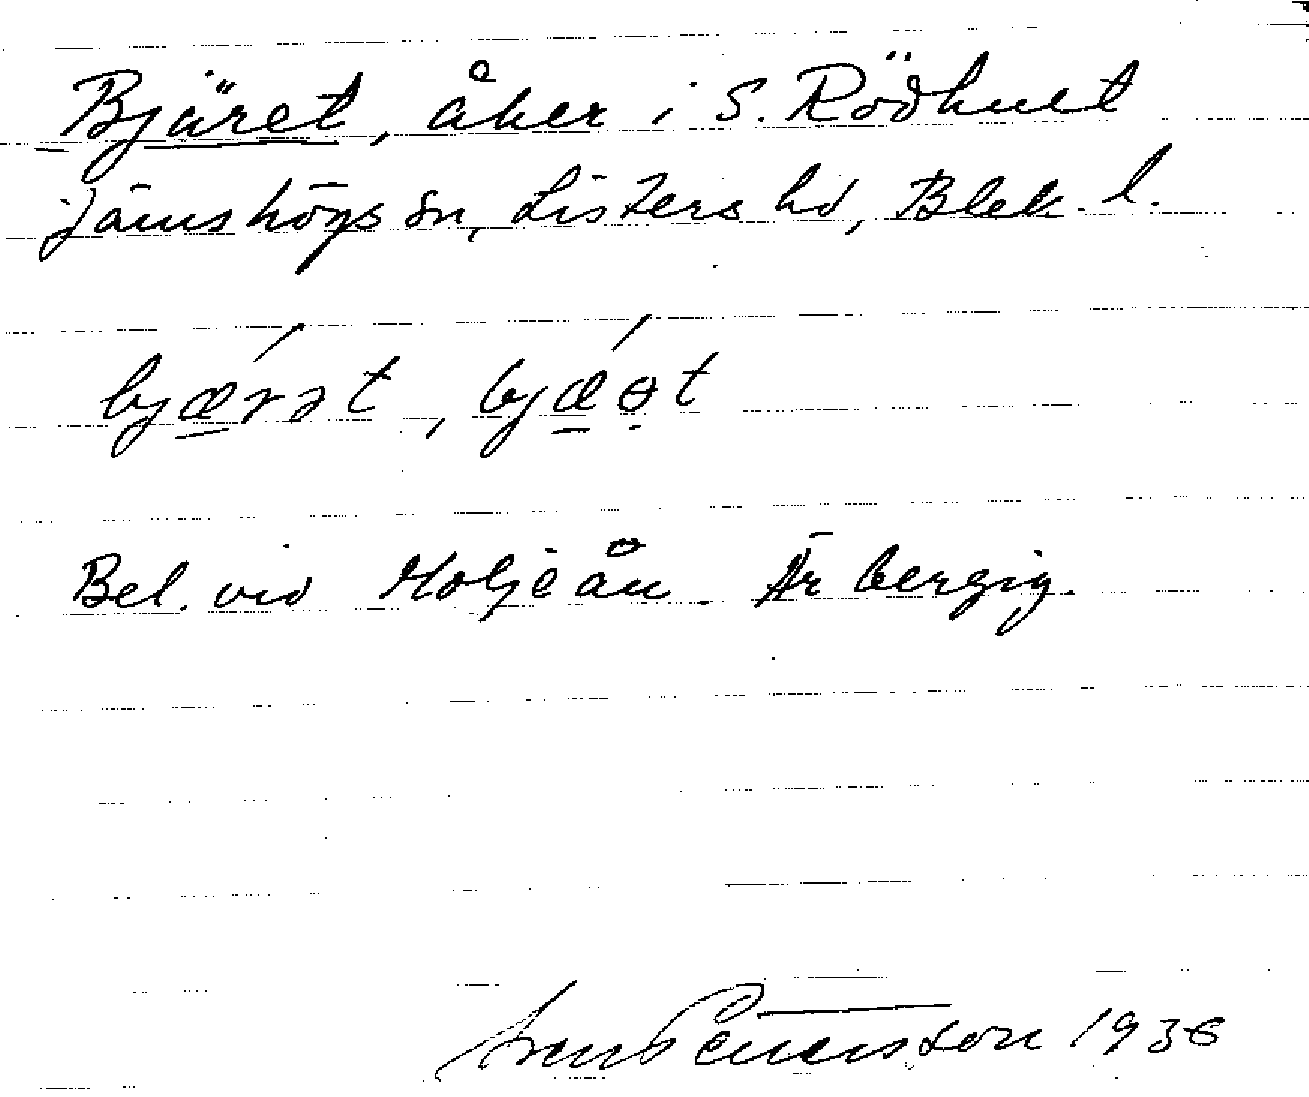 Bjäret, åker i S. Rödhult
Jämshögs sn, Listers hd, Blek. l.
bjærət, bjæət
Bel. vid Holjeån. Är bergig.
Sven Pettersson 1936